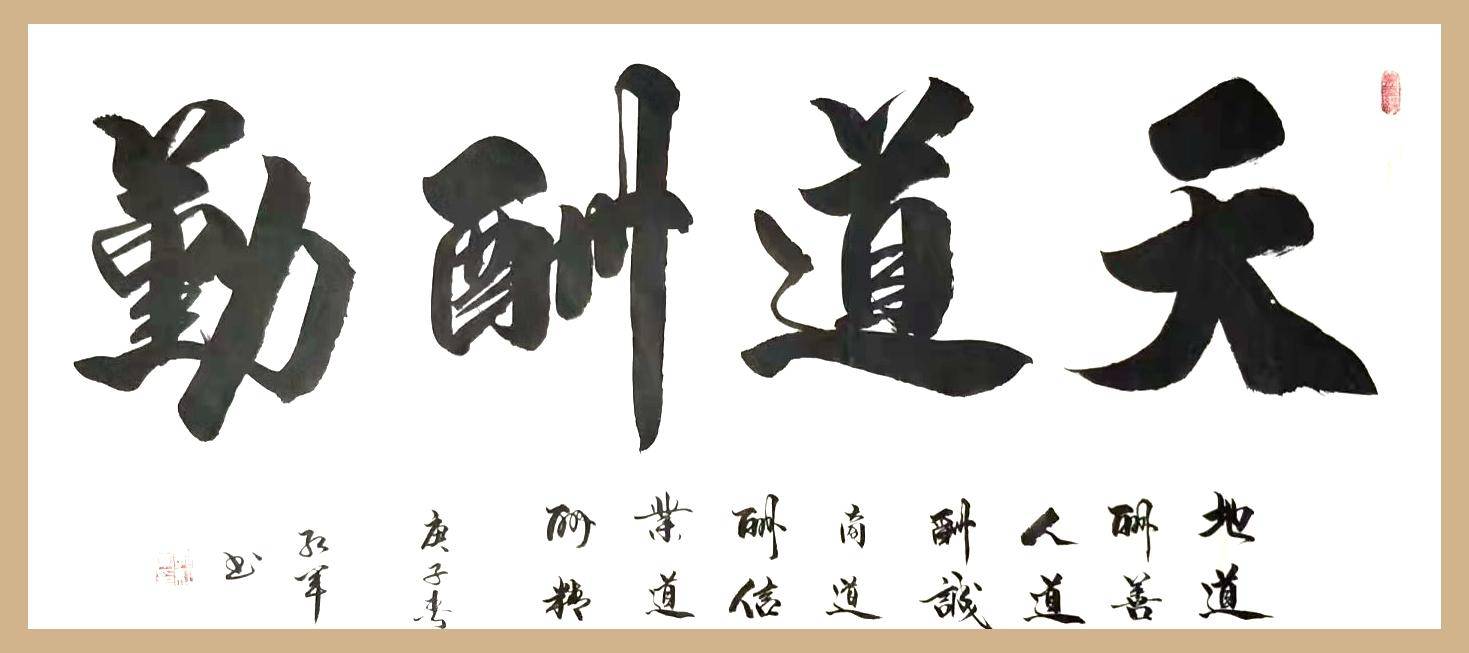 天道酬勤
地道
酬善
人道
酬誠
商道
酬信
業道
酬精
庚子春
红军
书